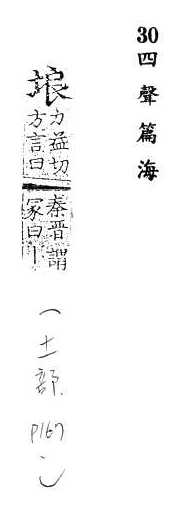 30 四聲篇海
埌
力益切
方言曰
秦晉謂
冢曰丨
（土部. P167）